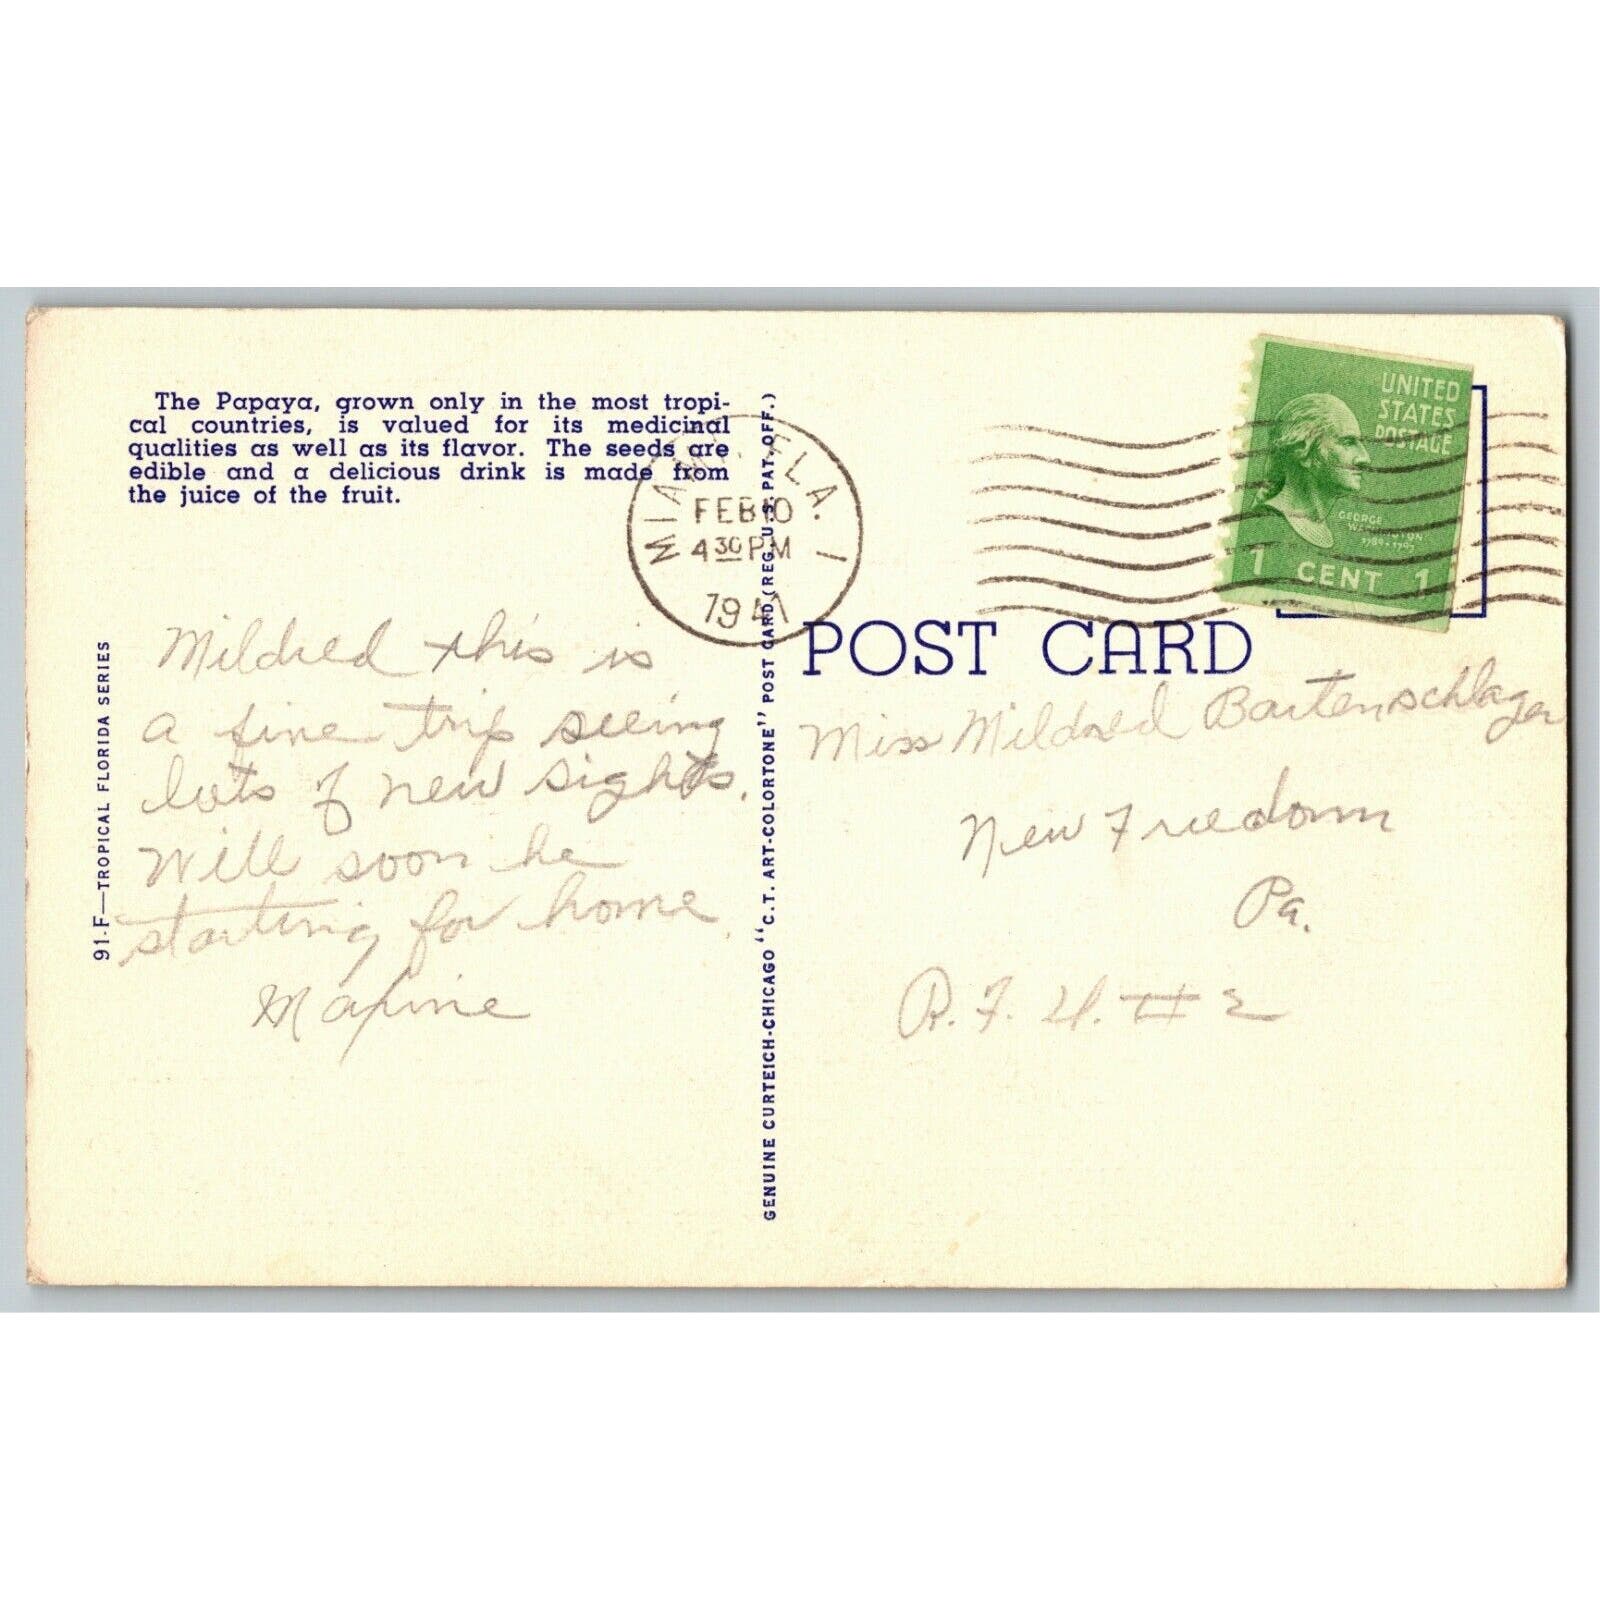 The Papaya, grown only in the most tropi-
cal countries, is valued for its medicinal
qualities as well as its flavor. The seeds are
edible and a delicious drink is made from
the juice of the fruit.
91-F—TROPICAL FLORIDA SERIES
Mildred this is
a fine trip seeing
lots of new sights.
Will soon be
starting for home.
Maxine
GENUINE CURTEICH-CHICAGO "C.T. ART-COLORTONE" POST CARD (REG. U.S. PAT. OFF.)
MIAMI, FLA. 1
FEB 10
4 30 PM
1941
UNITED
STATES
POSTAGE
GEORGE
WASHINGTON
1789-1797
1 CENT 1
POST CARD
Miss Mildred Bartenschlager
New Freedom
Pa.
R.F.D. #2